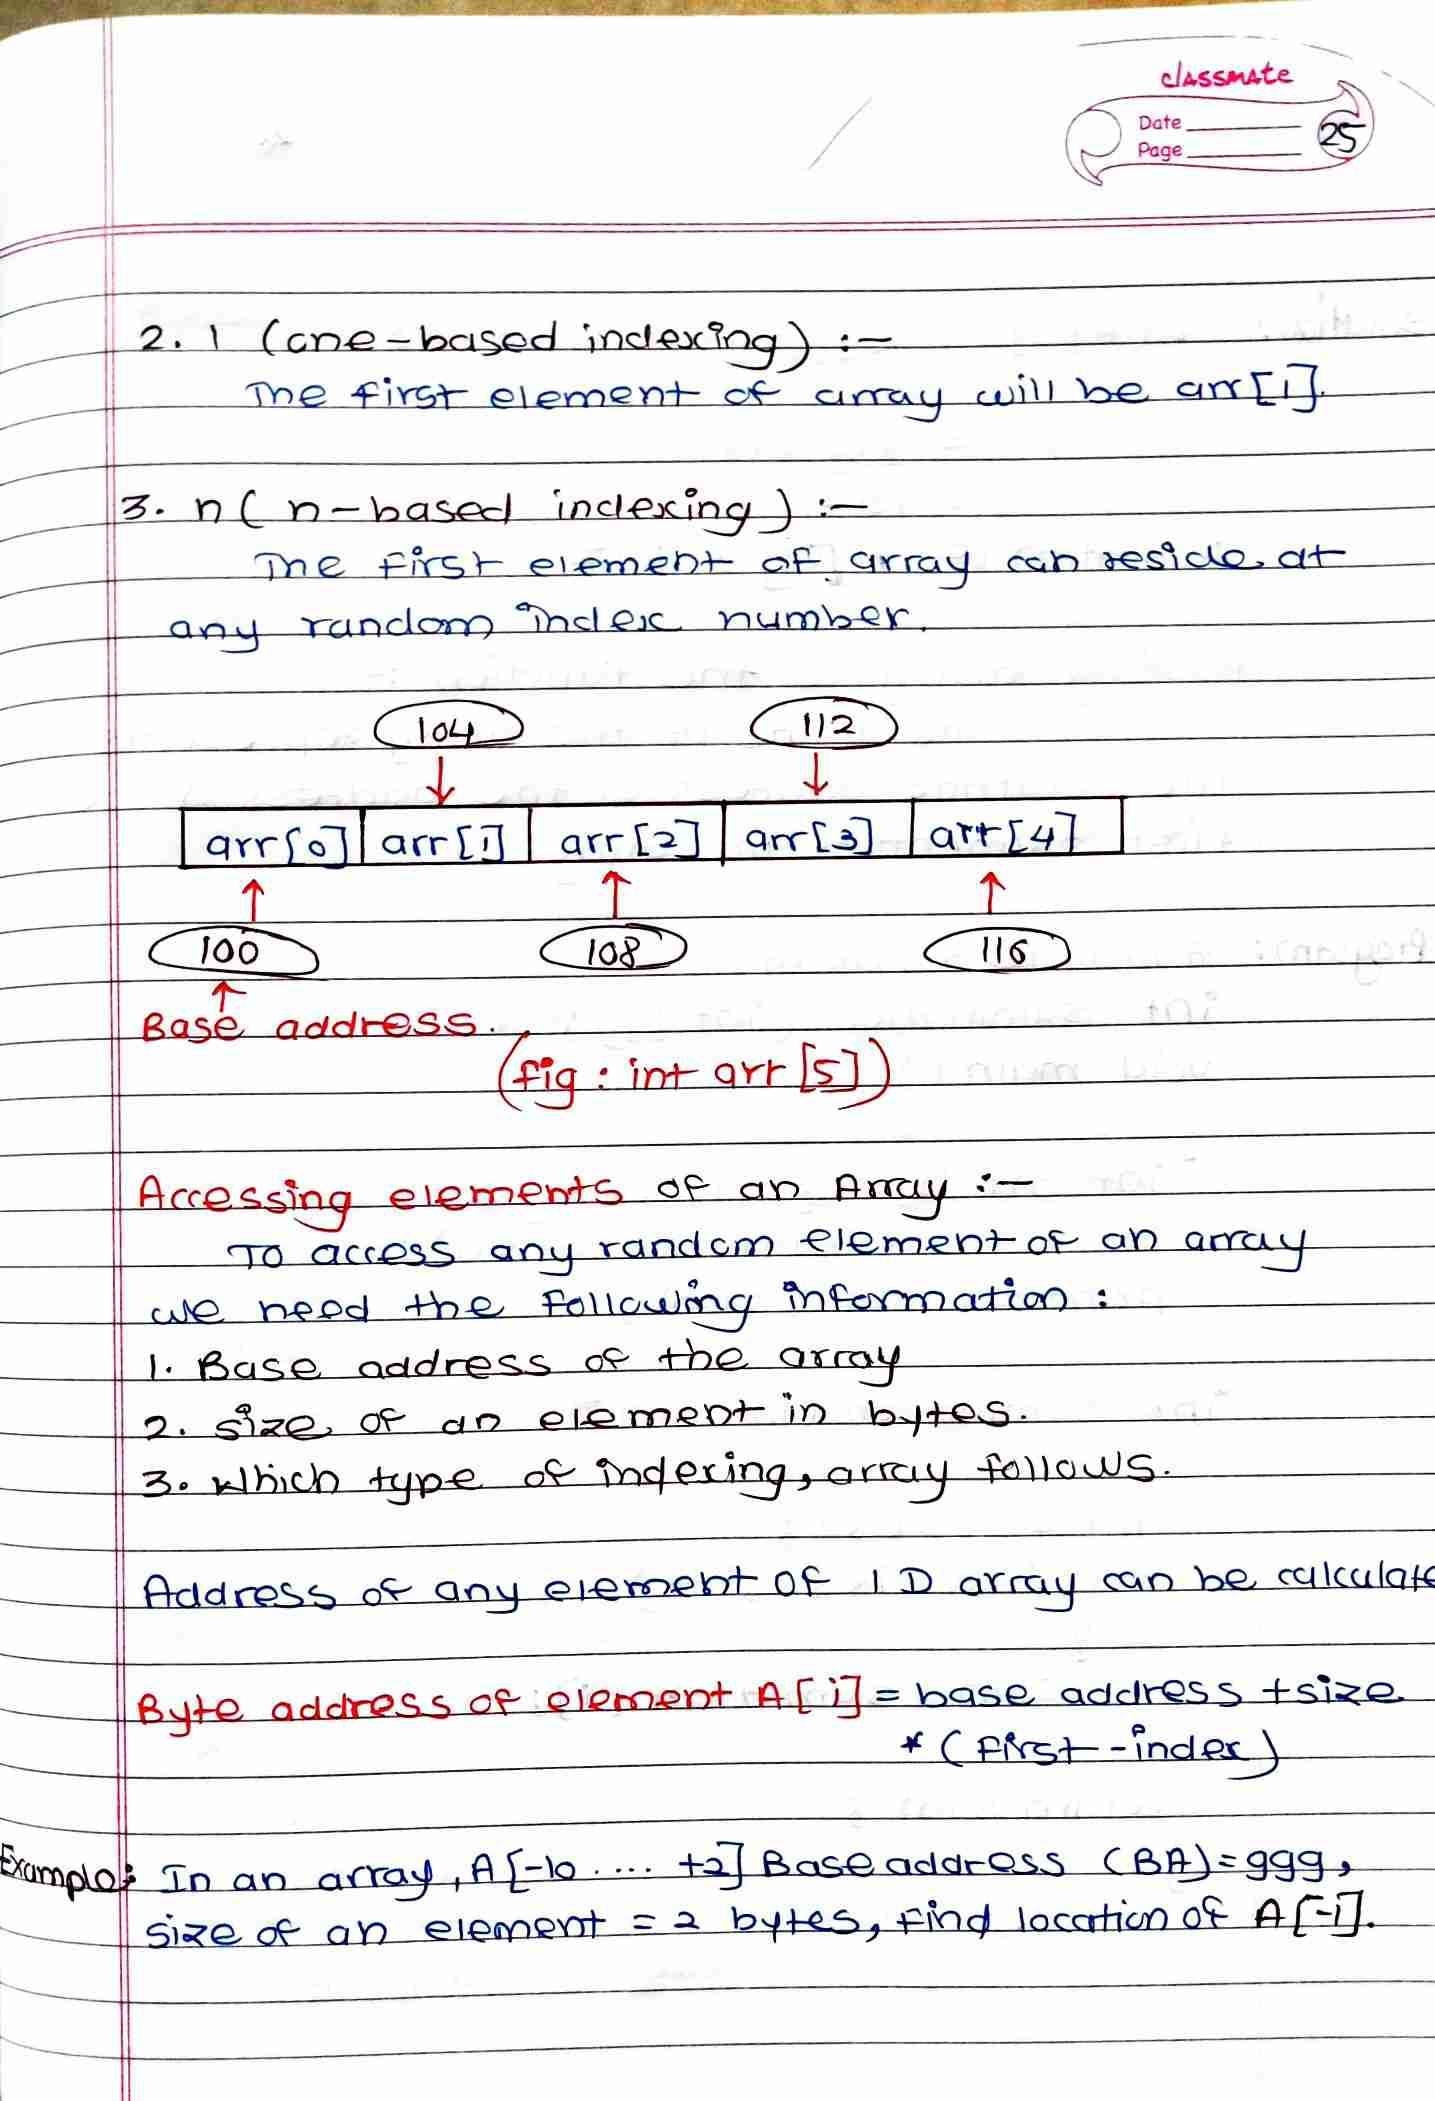 classmate
Date
Page
25
2. 1 (one-based indexing) :-
The first element of array will be arr[1].
3. n ( n-based indexing) :-
The first element of array can reside at
any random index number.
104 112
arr[0] arr[1] arr[2] arr[3] arr[4]
100 108 116
Base address.
(fig : int arr[5])
Accessing elements of an Array :-
To access any random element of an array
we need the following information :
1. Base address of the array
2. size of an element in bytes.
3. Which type of indexing, array follows.
Address of any element of 1 D array can be calculate
Byte address of element A[i] = base address + size
* (first - index)
Example: In an array, A[-10 .... +2] Base address (BA)=999,
size of an element = 2 bytes, find location of A[-1].